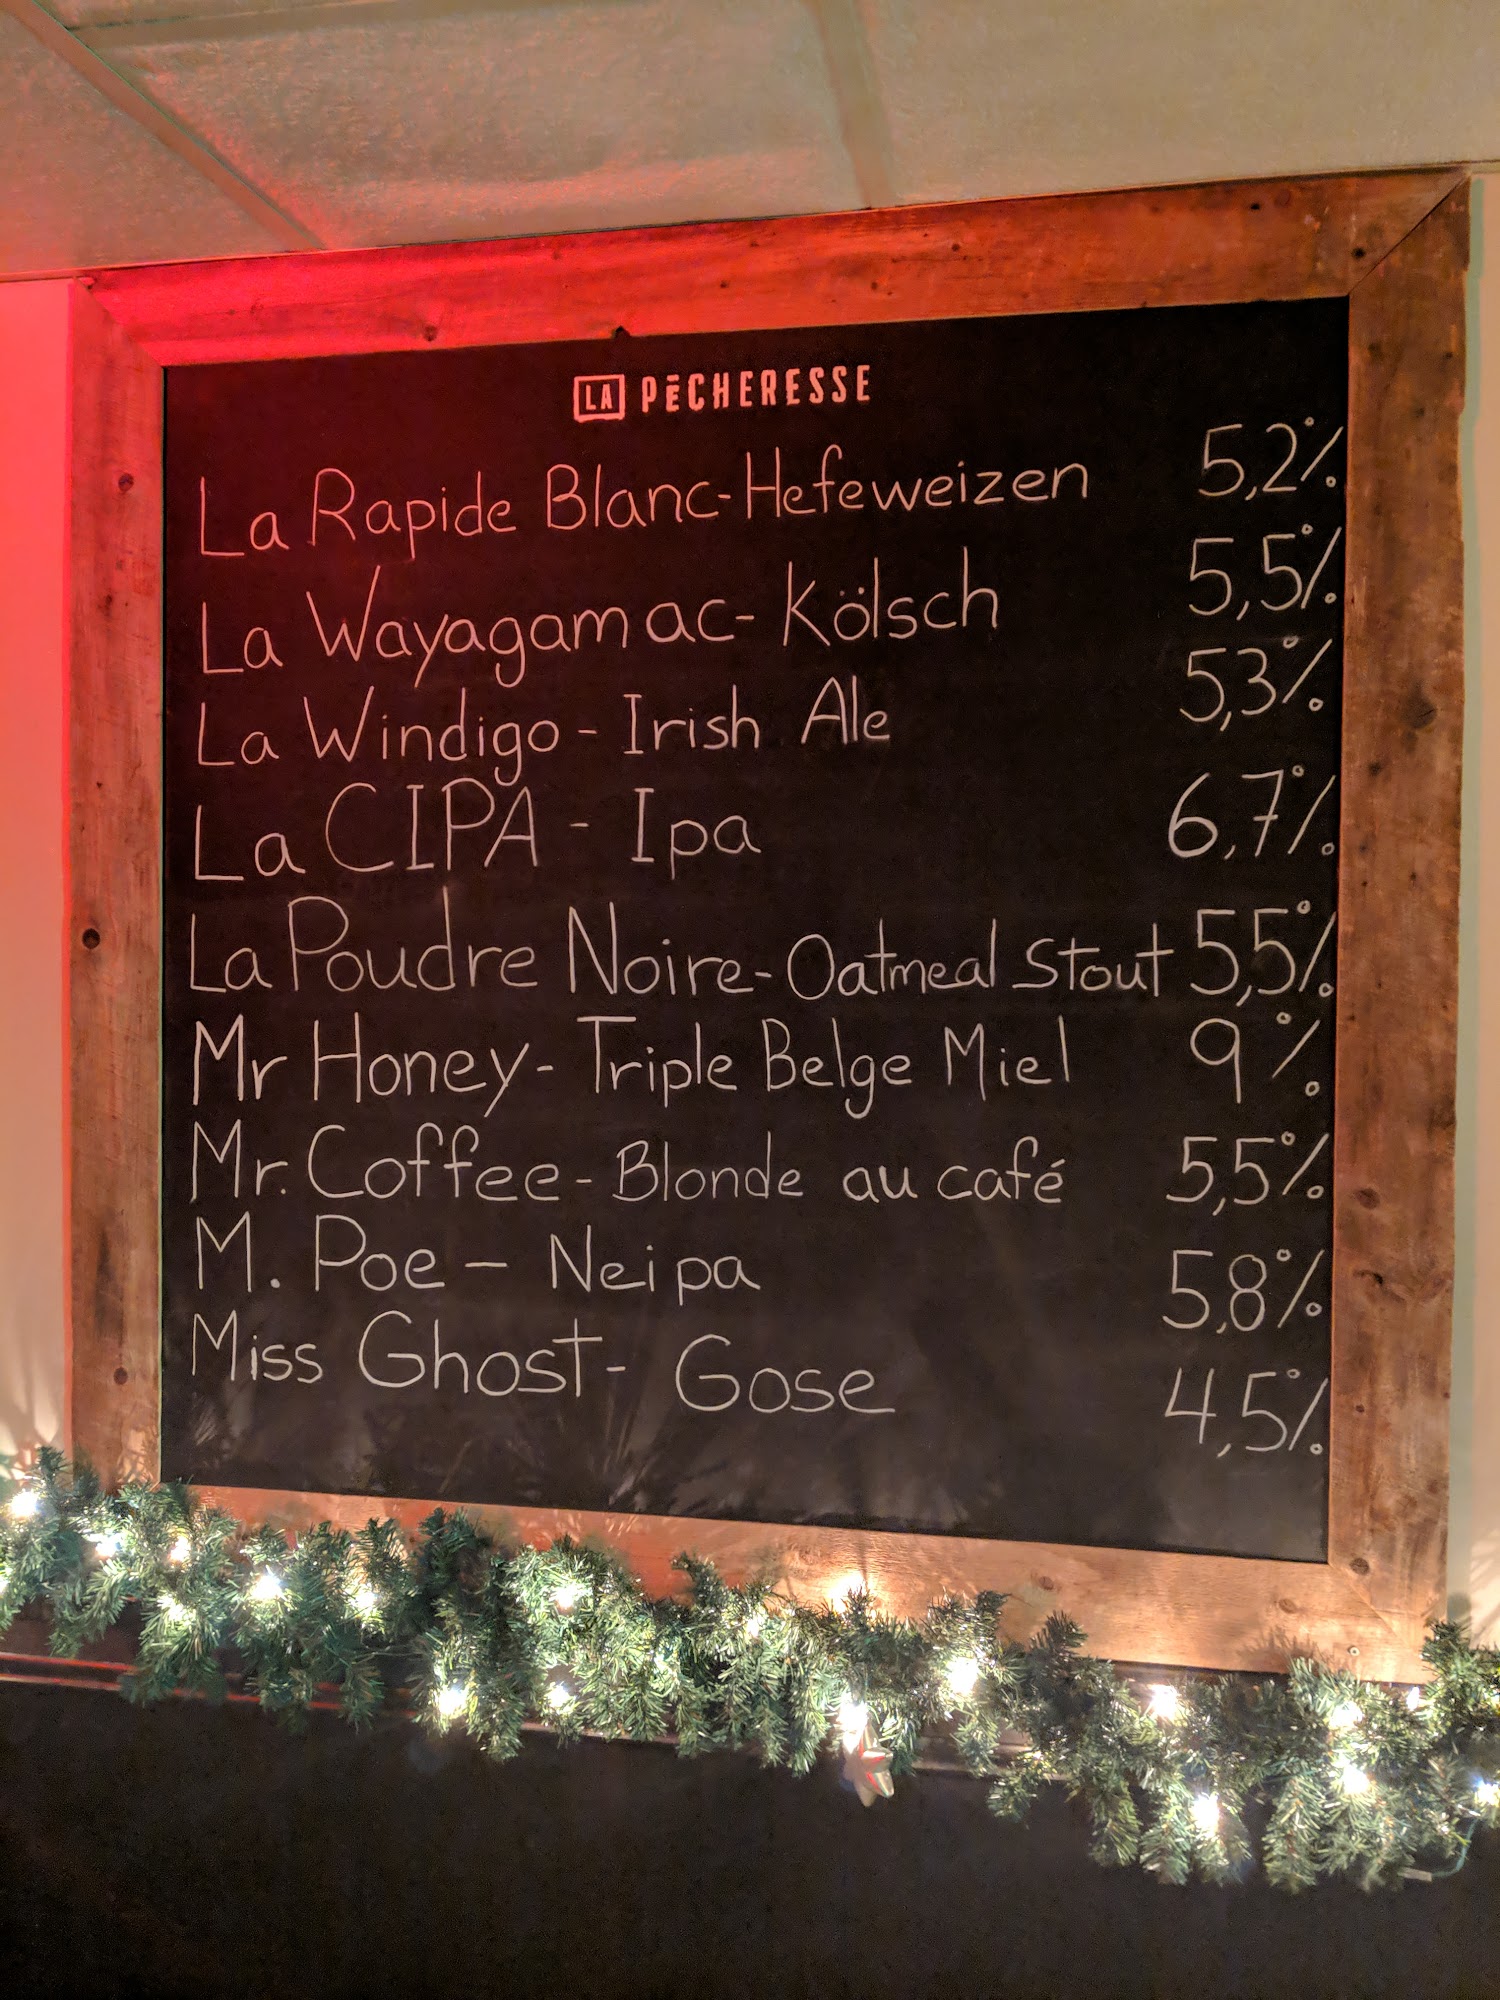 LA PêCHERESSE
La Rapide Blanc-Hefeweizen 5,2%
La Wayagamac- Kölsch 5,5%
La Windigo - Irish Ale 5,3%
La CIPA - Ipa 6,7%
La Poudre Noire- Oatmeal Stout 5,5%
Mr Honey- Triple Belge Miel 9%
Mr. Coffee- Blonde au café 5,5%
M. Poe - Neipa 5,8%
Miss Ghost- Gose 4,5%